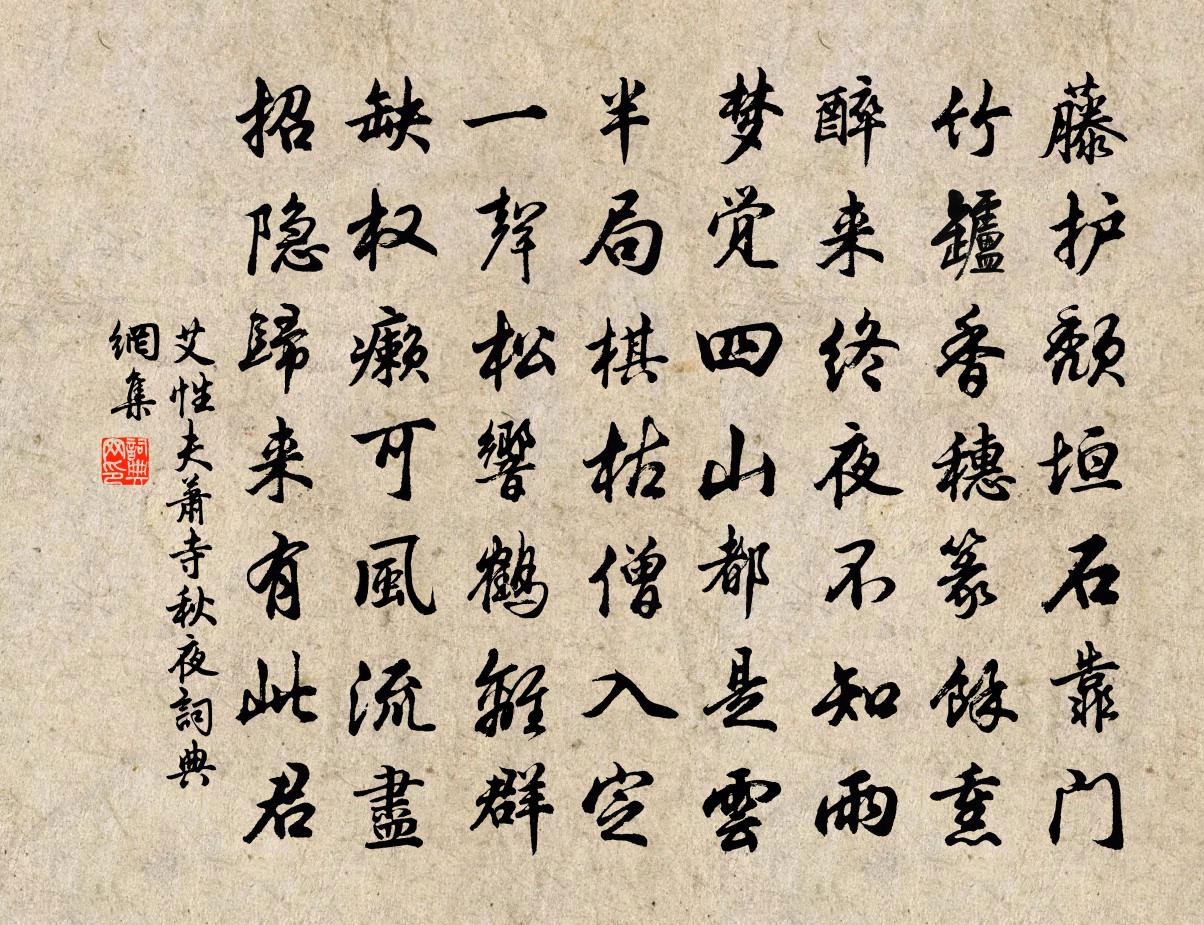 藤护颓垣石靠门
竹罏香穗篆馀熏
醉来终夜不知雨
梦觉四山都是雲
半局棋枯僧入定
一聲松響鹤離群
缺权癞可風流盡
招隐歸来有此君
艾性夫蕭寺秋夜詞典
網集
詞典
网印